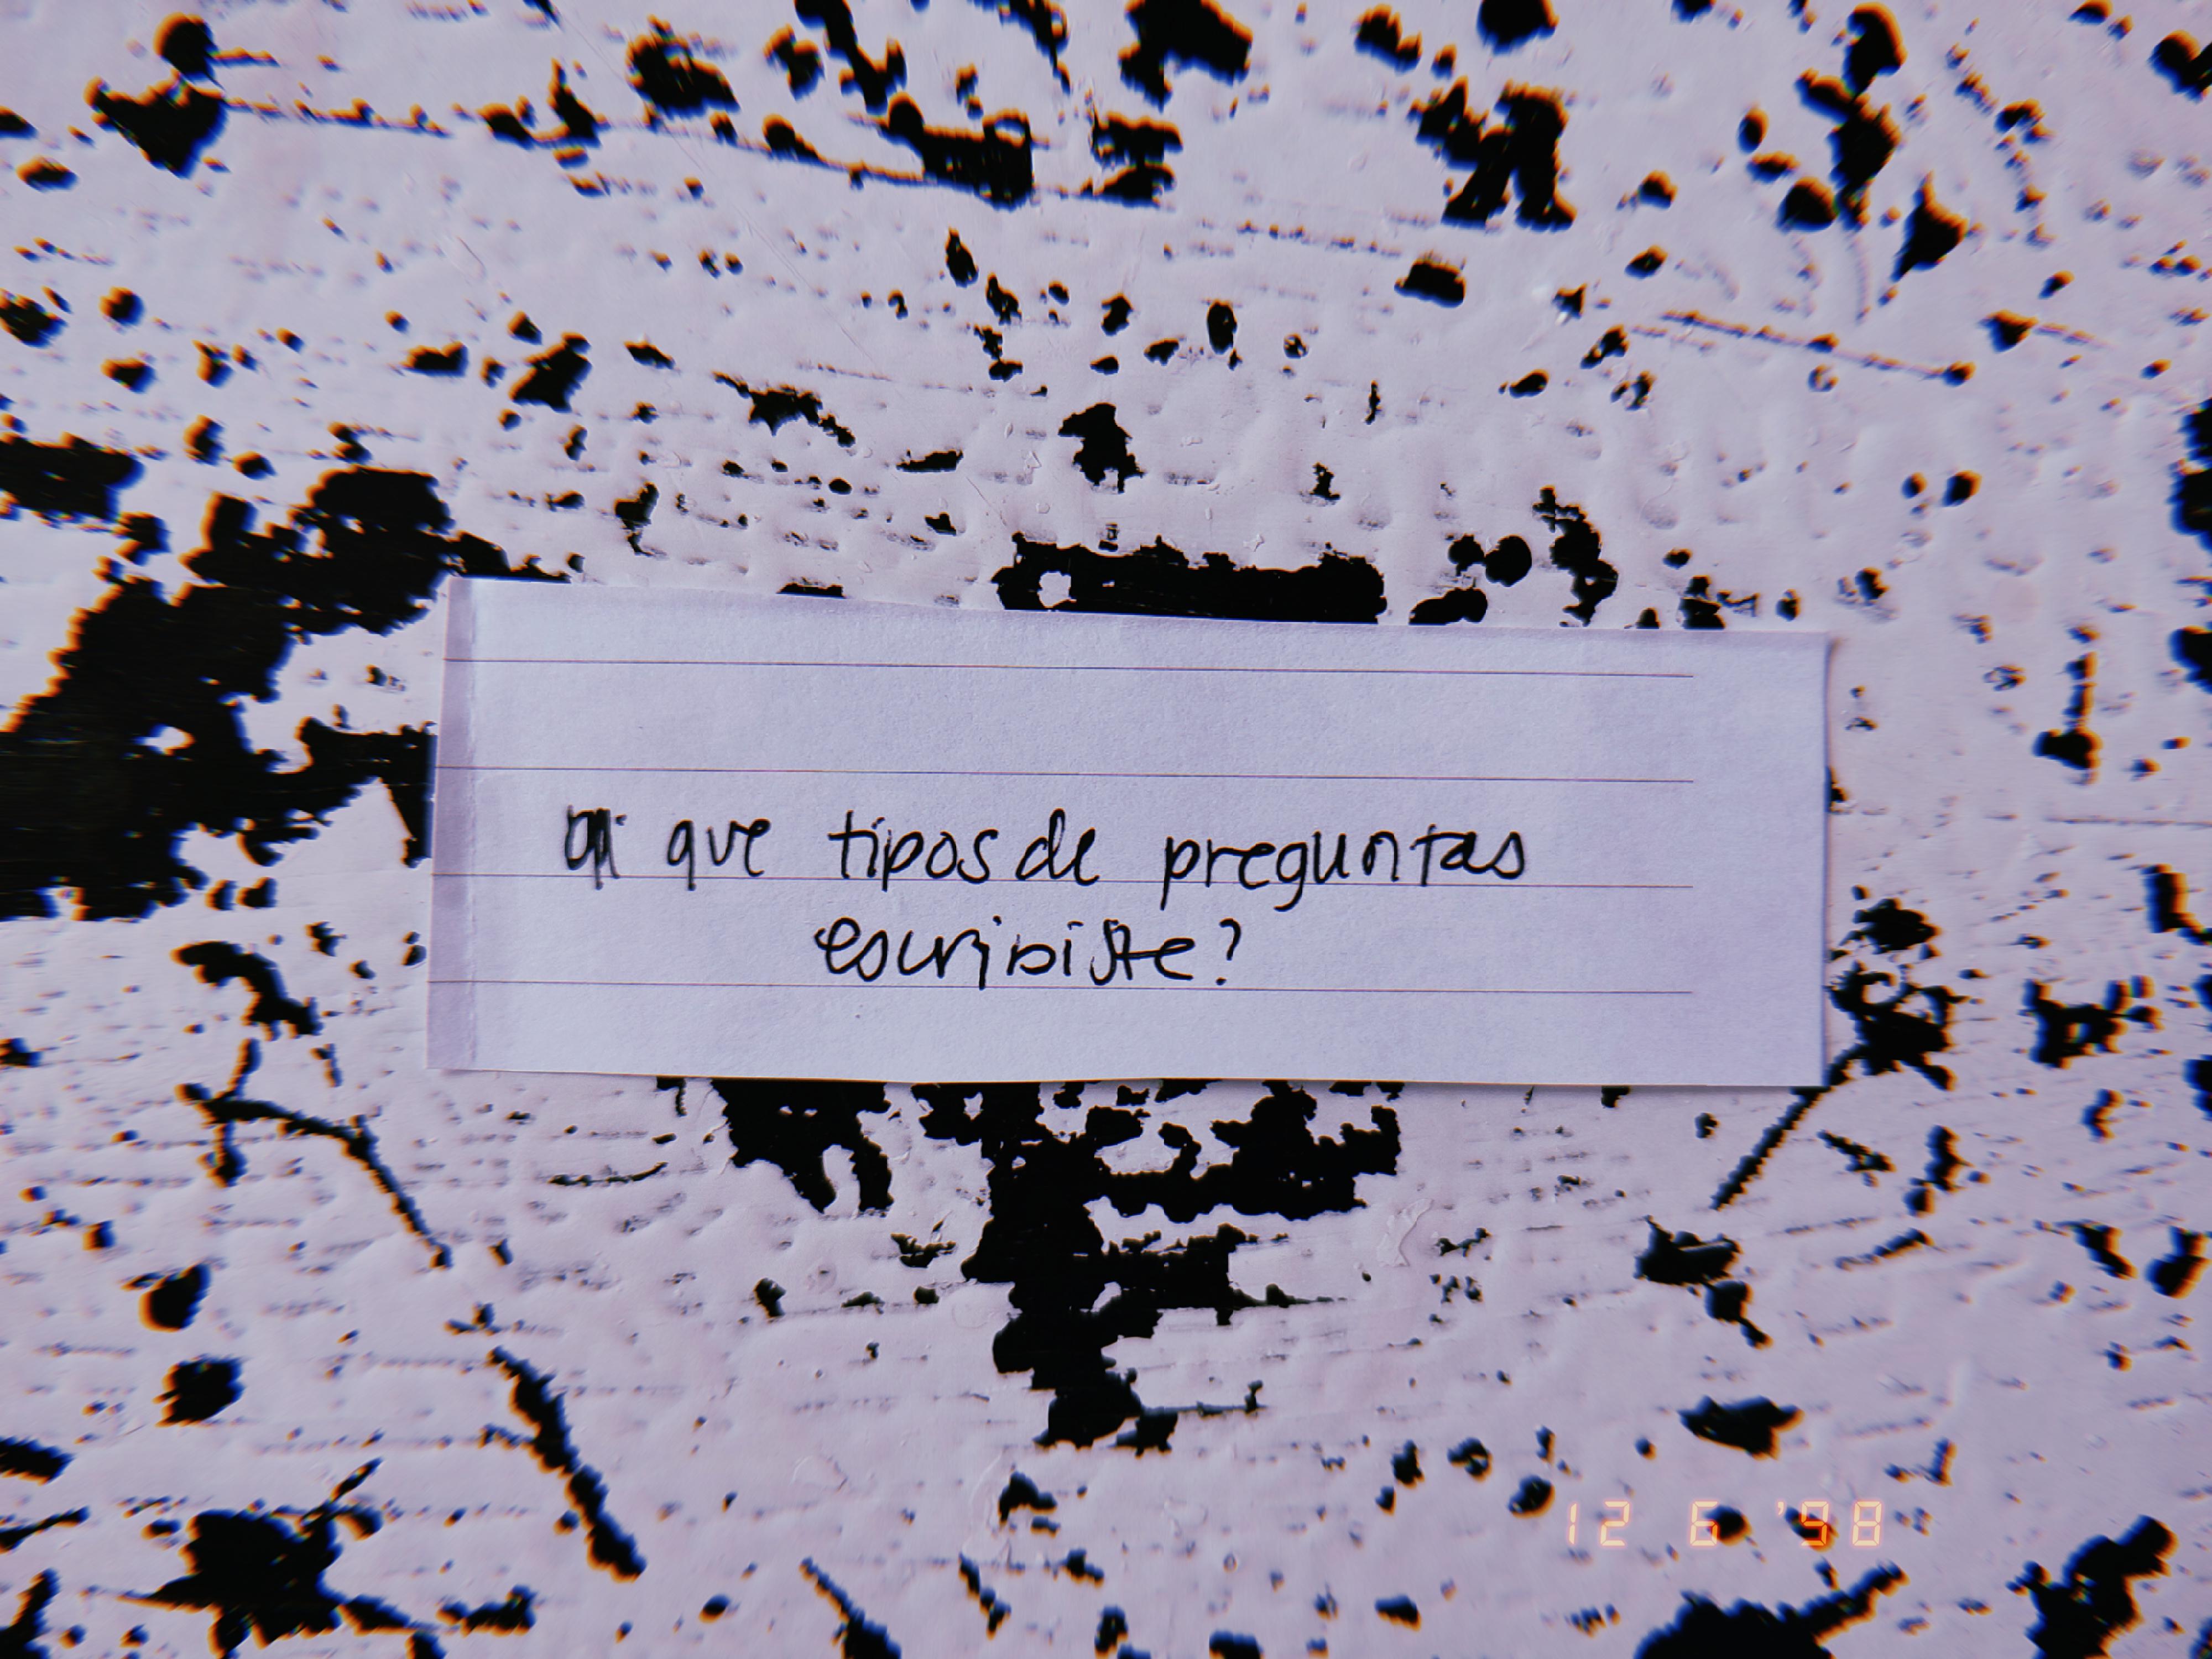 que tipos de preguntas
escribiste?
12 6 '98